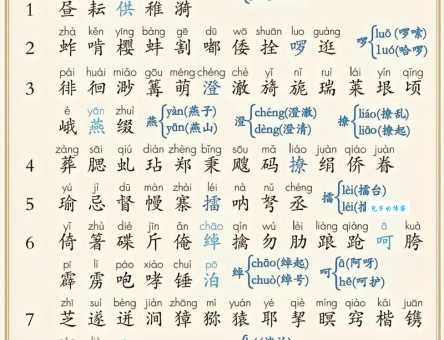 1 昼 耘 供 稚 漪
zhà kěn yīng bàng gē dū wō shuān luo guàng
2 蚱 啃 樱 蚌 割 嘟 倭 拴 啰 逛
啰 luō(啰嗦)
luó(哈啰)
pái huái miǎo gōu méng chéng chè yǐ nǐ ruì lái yín qǐng
3 徘 徊 渺 篝 萌 澄 澈 旖 旎 瑞 莱 垠 顷
é yān zhuì
峨 燕 缀
燕 yàn(燕子)
yān(燕山)
澄 chéng(澄澈)
dèng(澄清)
撩 liáo(撩乱)
liāo(撩起)
zàng sāi qiú diàn zhèng bǐng sōu mǎ liáo juàn qiáo juàn
4 葬 腮 虬 玷 郑 秉 飕 码 撩 绢 侨 眷
yú jì dū màn zhài léi nà nǔ chéng
5 瑜 忌 督 幔 寨 擂 呐 弩 丞
擂 lèi(擂台)
yǐ zhù dié jīn ǎn chāo qín wù lèi liàng qiàng ā kuà
6 倚 箸 碟 斤 俺 绰 擒 勿 肋 踉 跄 呵 胯
pī lì páo xiào chuí pō
霹 雳 咆 哮 锤 泊
绰 chāo(绰起)
chuò(绰号)
呵 ā(呵呀)
hē(呵护)
zhī suì bèng jiàn zhāng mí yuán yé qiè míng qiào kǎi juān
7 芝 遂 迸 涧 獐 猕 猿 耶 挈 暝 窍 楷 镌